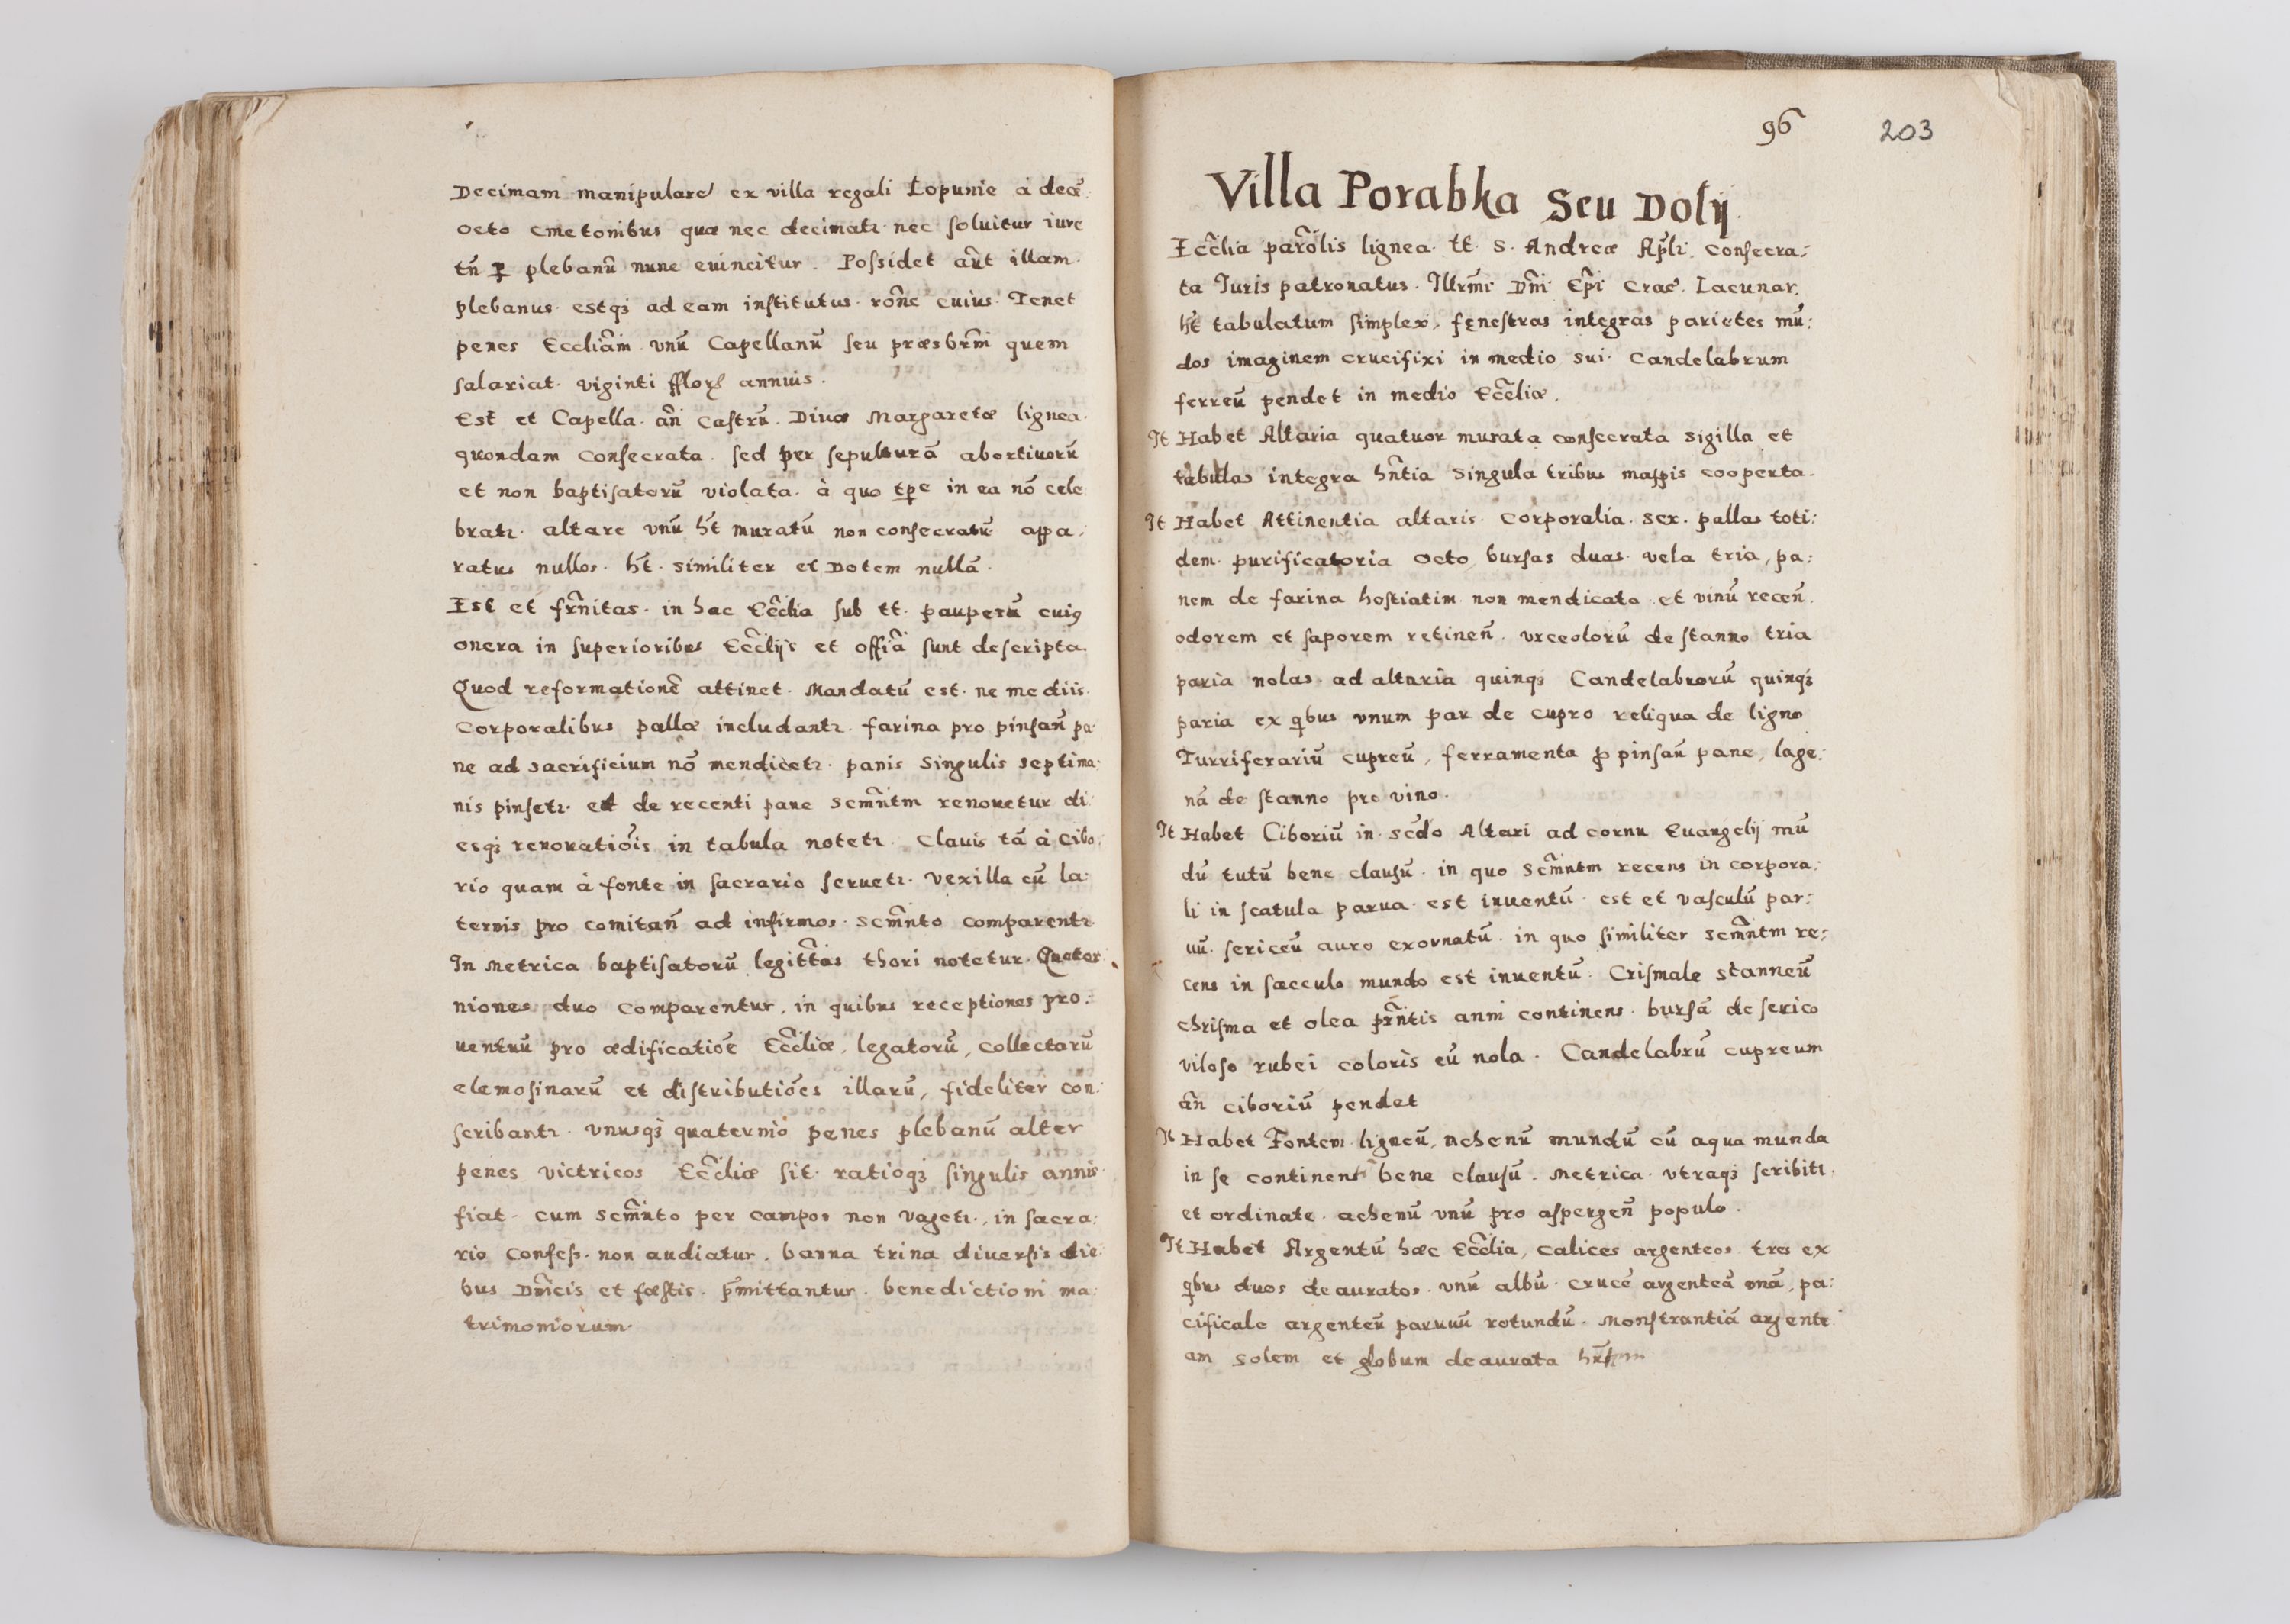 Decimam manipulare ex villa regali Łopunie à decē
octo cmetonibus quæ nec decimatr nec soluitur iure
tn̄ ꝑ plebanū nunc euincitur. Possidet aūt illam
plebanus estqꝫ ad eam institutus rōne cuius. Tenet
penes Eccliam̃ vnū Capellanū seu præsbrm̃ quem
salariat viginti fflor annuis.
Est et Capella añ Castrū. Diuæ Margaretæ lignea
quondam consecrata sed per sepulturā abortiuorū
et non baptisatorū violata à quo tpe in ea nō cele
bratr. altare vnū ht̄ muratū non consecratū appa:
ratus nullos ht̄. similiter et Dotem nullā.
Est et frñitas in hac Ecc̃lia sub tt. pauperū cuiꝰ
onera in superioribus Ecc̃lijs et offi͂a sunt descripta.
Quod reformationē attinet. Mandatū est. ne mediis
corporalibus pallæ includantr. farina pro pinsañ pa:
ne ad sacrificium nō mendicetr. panis singulis septima:
nis pinsetr. et de recenti pane Scm̃ntm renouetur di:
esqꝫ renouatiōis in tabula notetr. Clauis tā à Cibo:
rio quam à fonte in sacrario seruetr. Vexilla cū la:
ternis pro comitañ ad infirmos Scm̃nto comparentr.
In Metrica baptisatorū legittas̃ thori notetur. Quater
niones duo comparentur, in quibus receptiones pro:
uentuū pro ædificatiōe Ecc̃liæ, legatorū, collectarū
elemosinarū et distributiōes illarū, fideliter con:
scribantr. vnusqꝫ quaternio penes plebanū alter
penes victricos Ecc̃liæ sit. ratioqꝫ singulis annis
fiat. cum scm̃nto per campos non vagetr., in sacra:
rio confess. non audiatur. banna trina diuersis die:
bus Dñicis et fæstis. p̃mittantur. benedictioni ma:
trimoniorum.
96
203
Villa Porabka Seu Dolij.
Ecc̃lia parõlis lignea. tt. S. Andreæ Apl̃i. Consecra:
ta Iuris patronatus. Illrm̃i Dñi Ep̃i Crac̃. Lacunar.
ht̄ tabulatum simplex, fenestras integras parietes mū:
dos imaginem crucifixi in medio sui. Candelabrum
ferreū pendet in medio Ecc̃liæ.
It Habet Altaria quatuor murata consecrata sigilla et
tabulas integra hñtia singula tribus mappis cooperta.
It Habet Attinentia altaris. Corporalia. sex. pallas toti:
dem. purificatoria octo, bursas duas. vela tria, pa:
nem de farina hostiatim non mendicata et vinū receñ.
odorem et saporem retineñ. vrceolorū de stanno tria
paria nolas ad altaria quinqꝫ Candelabrorū quinqꝫ
paria ex qbus vnum par de cupro reliqua de ligno
Turriferariū cupreū, ferramenta ꝓ pinsañ pane, lage:
nā de stanno pro vino.
It Habet Ciboriū in scd̃o Altari ad cornu Euangelij mū
dū tutū bene clausū. in quo Scm̃ntm recens in corpora:
li in scatula parua est inuentū. est et vasculū par:
uū. sericeū auro exornatū. in quo similiter scm̃ntm re:
cens in sacculo mundo est inuentū. Crismale stanneū
chrisma et olea p̃rntis anni continens. bursā de serico
viloso rubei coloris cū nola. Candelabrū cupreum
añ ciborium pendet
It Habet Fontem ligneū, achenū mundū cū aqua munda
in se continens bene clausū. Metrica vtraqꝫ scribitr.
et ordinate. achenū vnū pro aspergeñ populo.
It Habet Argentū hæc Ecc̃lia, calices argenteos tres ex
qbus duos deauratos vnū albū. crucē argenteā vnā, pa:
cificale argenteū paruuū rotundū. Monstrantiā argente
am solem et globum deaurata